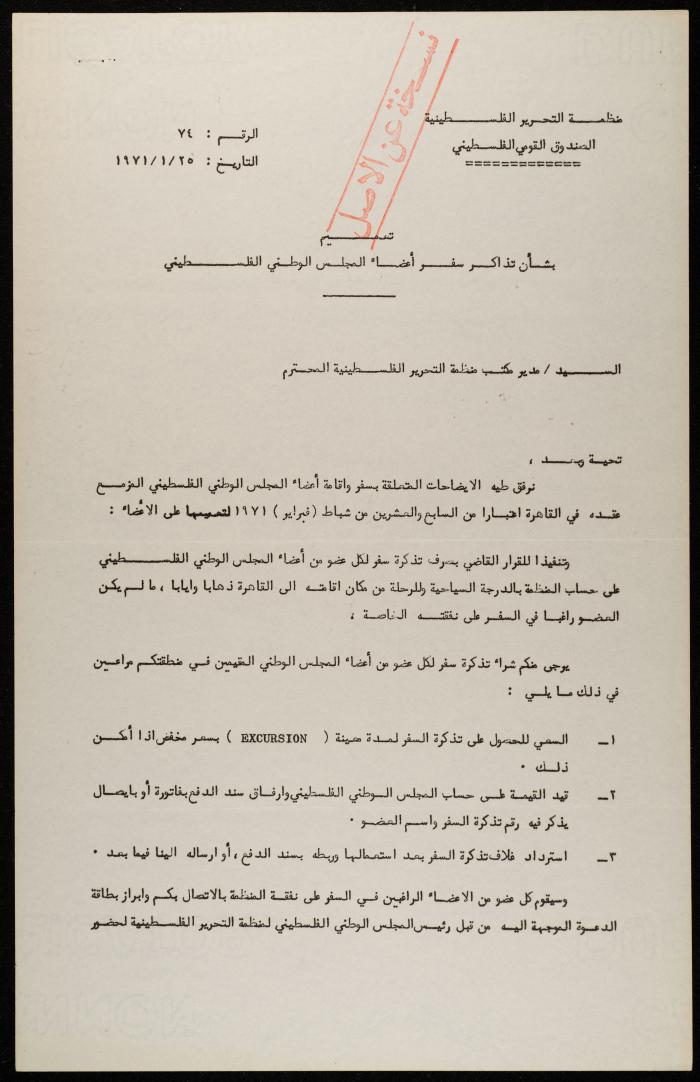 منظمة التحرير الفلسطينية
الصندوق القومي الفلسطيني
الرقم : ٧٤
التاريخ : ١٩٧١/١/٢٥
نسخة عن الاصل
تعميم
بشأن تذاكر سفر أعضاء المجلس الوطني الفلسطيني
السيد / مدير مكتب منظمة التحرير الفلسطينية المحترم
تحية وبعد ،
نرفق طيه الايضاحات المتعلقة بسفر واقامة أعضاء المجلس الوطني الفلسطيني المزمع
عقده في القاهرة اعتبارا من السابع والعشرين من شباط (فبراير) ١٩٧١ لتعميمها على الأعضاء :
وتنفيذا للقرار القاضي بصرف تذكرة سفر لكل عضو من أعضاء المجلس الوطني الفلسطيني
على حساب المنظمة بالدرجة السياحية وللرحلة من مكان اقامته الى القاهرة ذهابا وايابا ، ما لم يكن
العضو راغبا في السفر على نفقته الخاصة ،
يرجى منكم شراء تذكرة سفر لكل عضو من أعضاء المجلس الوطني المقيمين في منطقتكم مراعين
في ذلك ما يلي :
١ـ السعي للحصول على تذكرة السفر لمدة معينة ( EXCURSION ) بسعر مخفض اذا أمكن
ذلك .
٢ـ قيد القيمة على حساب المجلس الوطني الفلسطيني وارفاق سند الدفع بفاتورة أو بايصال
يذكر فيه رقم تذكرة السفر واسم العضو .
٣ـ استرداد غلاف تذكرة السفر بعد استعمالها وربطه بسند الدفع ، أو ارساله الينا فيما بعد .
وسيقوم كل عضو من الاعضاء الراغبين في السفر على نفقة المنظمة بالاتصال بكم وابراز بطاقة
الدعوة الموجهة اليه من قبل رئيس المجلس الوطني الفلسطيني لمنظمة التحرير الفلسطينية لحضور